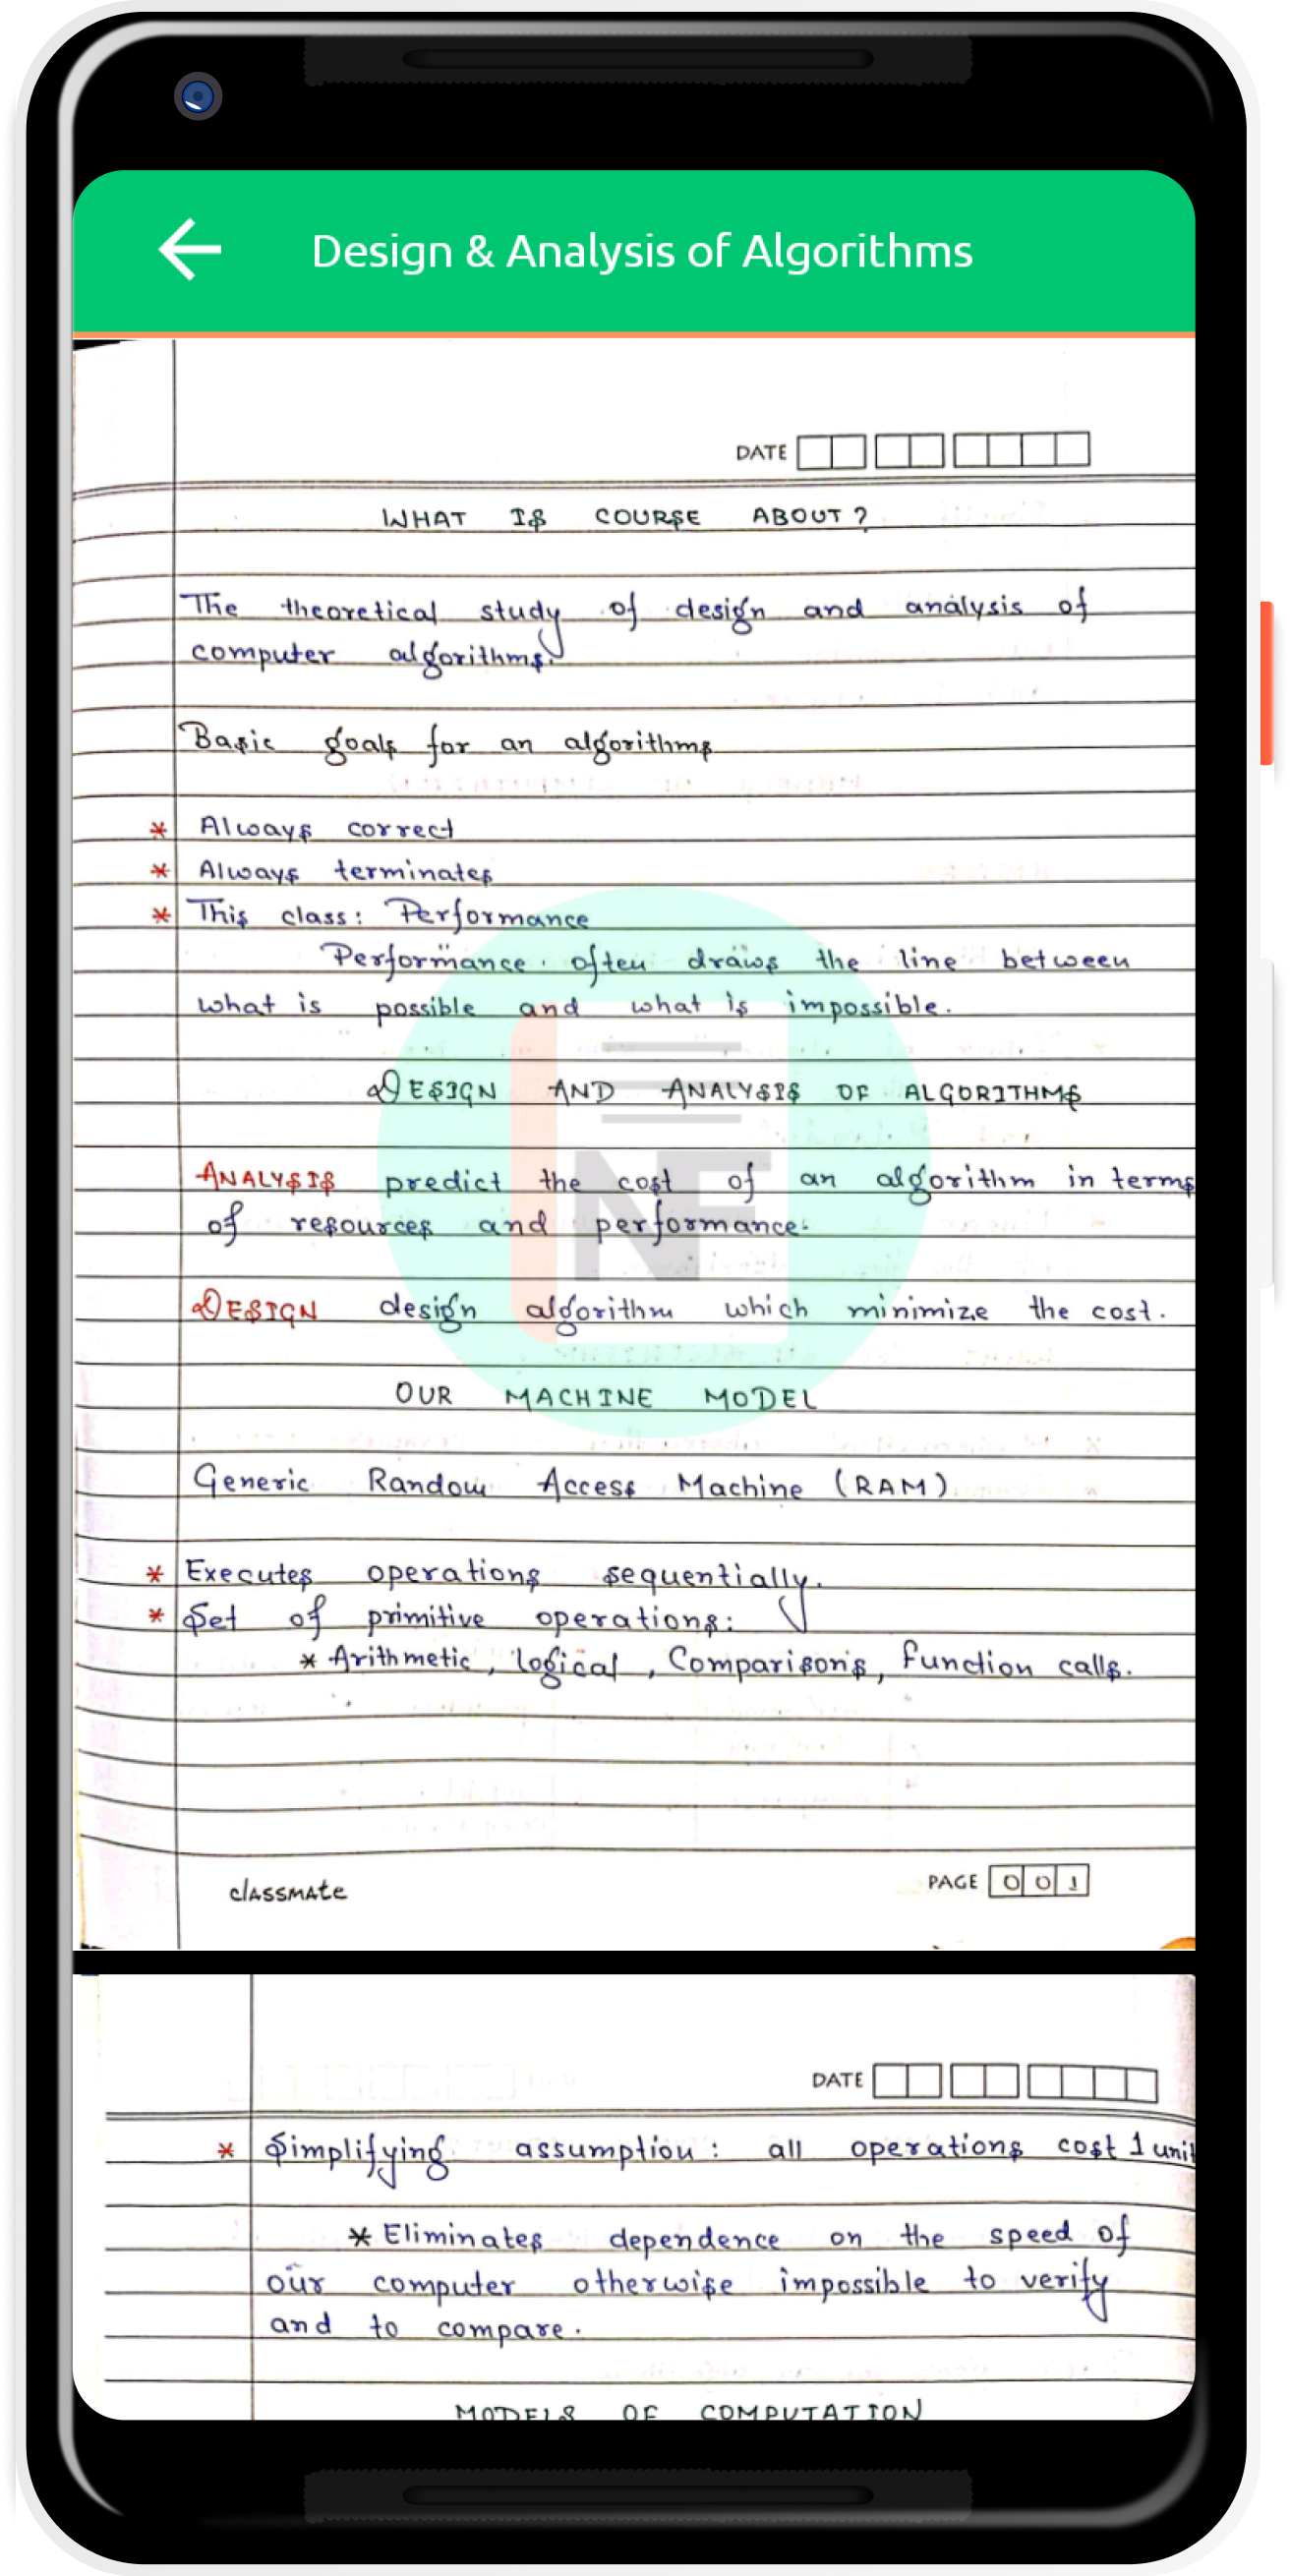 Design & Analysis of Algorithms
DATE
WHAT IS COURSE ABOUT?
The theoretical study of design and analysis of
computer algorithms.
Basic goals for an algorithms
* Always correct
* Always terminates
* This class: Performance
Performance often draws the line between
what is possible and what is impossible.
DESIGN AND ANALYSIS OF ALGORITHMS
ANALYSIS predict the cost of an algorithm in terms
of resources and performance.
DESIGN design algorithm which minimize the cost.
NF
OUR MACHINE MODEL
Generic Random Access Machine (RAM)
* Executes operations sequentially.
* Set of primitive operations:
* Arithmetic, logical, Comparisons, function calls.
classmate
PAGE 001
DATE
* Simplifying assumption: all operations cost 1 unit
* Eliminates dependence on the speed of
our computer otherwise impossible to verify
and to compare.
MODELS OF COMPUTATION